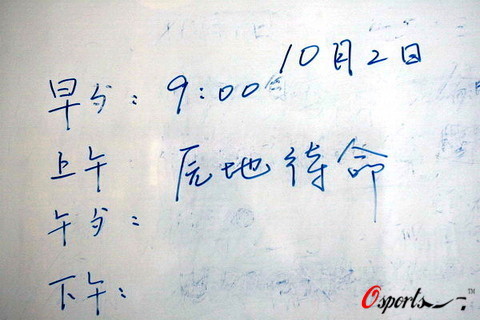 10月2日
早歺：9:00
上午 原地待命
午歺：
下午：
Osports
TM